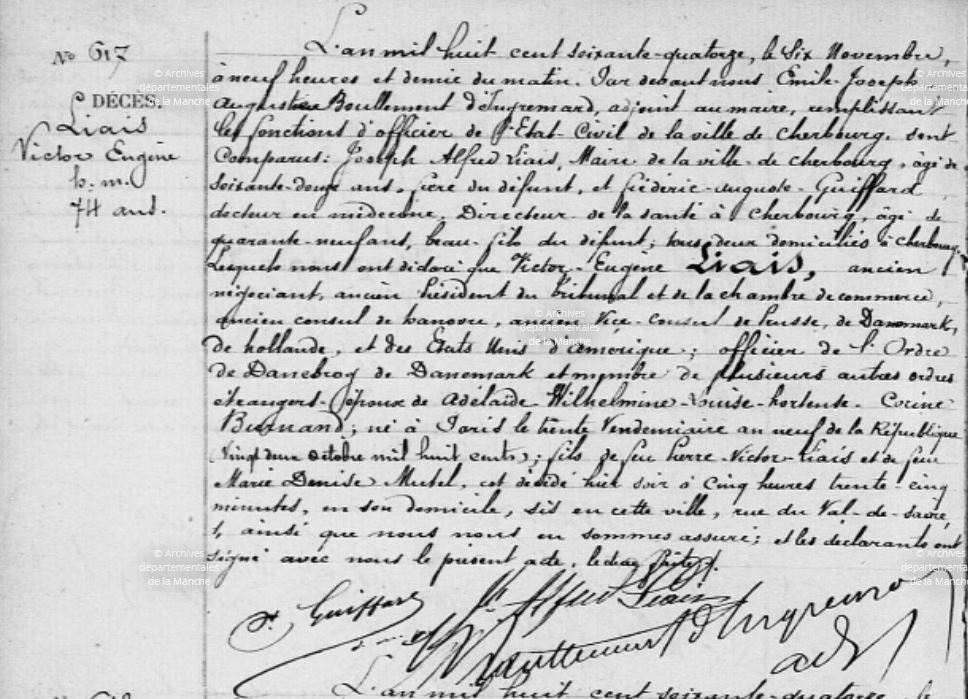 No 617
DÉCÈS.
Liais
Victor Eugène
h. m.
74 ans.
L'an mil huit cent soixante-quatorze, le Six Novembre,
à neuf heures et demie du matin. Par devant nous Emile-Joseph
Augustin Boullement d'Ingremard, adjoint au maire, remplissant
les fonctions d'officier de l'Etat-Civil de la ville de Cherbourg. sont
Comparus: Joseph Alfred Liais, Maire de la ville de Cherbourg, âgé de
soixante-douze ans, frère du défunt, et Frédéric-Auguste-Guiffard
docteur en médecine, Directeur de la santé à Cherbourg, âgé de
quarante-neuf ans, beau-fils du défunt; tous deux domiciliés à Cherbourg.
Lesquels nous ont déclaré que Victor-Eugène Liais, ancien
négociant, ancien Président du Tribunal et de la chambre de commerce,
ancien consul de hanovre, ancien Vice-Consul de Prusse, de Danemark,
de hollande, et des Etats Unis d'amérique; officier de l'Ordre
de Danebrog de Danemark et membre de plusieurs autres ordres
étrangers. époux de Adélaïde Wilhelmine-Louise-hortense-Corine
Burnand; né à Paris le trente Vendemiaire an neuf de la République
(vingt deux octobre mil huit cents); fils de feu Pierre-Victor-Liais et de feue
Marie Denise Mutel, est décédé hier soir à Cinq heures trente-cinq
minutes, en son domicile, sis en cette ville, rue du Val-de-Saire,
, ainsi que nous nous en sommes assuré; et les déclarants ont
signé avec nous le présent acte,
Guiffard
Alfred Liais
Boullement d'Ingremard
adj
L'an mil huit cent soixante-quatorze, le
© Archives
départementales
de la Manche
© Archives
départementales
de la Manche
© Archives
départementales
de la Manche
© Archives
départementales
de la Manche
© Archives
départementales
de la Manche